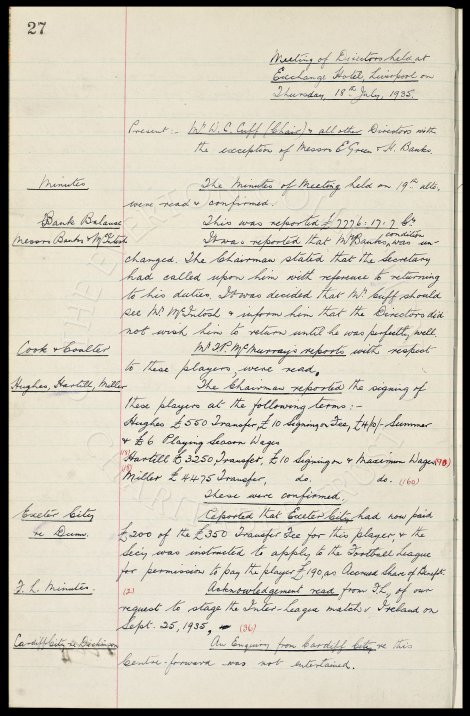 27
Meeting of Directors held at
Exchange Hotel, Liverpool on
Thursday, 18th July, 1935.
Present :- Mr W. C. Cuff (Chair) & all other Directors with
the exception of Messrs E. Green & H. Banks.
Minutes The Minutes of Meeting held on 19th ulto,
were read & confirmed.
Bank Balance This was reported £7776:17:7 Cr
Messrs Banks & McIntosh It was reported that Mr Banks, condition was un-
changed. The Chairman stated that the Secretary
had called upon him with reference to returning
to his duties. It was decided that Mr. Cuff should
see Mr McIntosh & inform him that the Directors did
not wish him to return until he was perfectly well.
Cook & Coulter Mr W. McMurray's reports with respect
to these players, were read.
Hughes, Hartill, Miller The Chairman reported the signing of
these players at the following terms :-
Hughes £550 Transfer, £10 Signing on Fee, £4/0/- Summer
& £6 Playing Season Wages
Hartill £3250 Transfer, £10 Signing on & Maximum Wages
Miller £4475 Transfer, do. do. (160)
These were confirmed.
Exeter City Reported that Exeter City had now paid
re Dunn. £200 of the £350 Transfer Fee for this player & the
Secy was instructed to apply to the Football League
for permission to pay the player £190, as Accrued Share of Benefit.
F. L. Minutes. (2) Acknowledgement read from F.L, of our
request to stage the Inter-league match v Ireland on
Sept. 25, 1935, (36)
Cardiff City re Dickinson An Enquiry from Cardiff City re this
Centre-forward was not entertained.